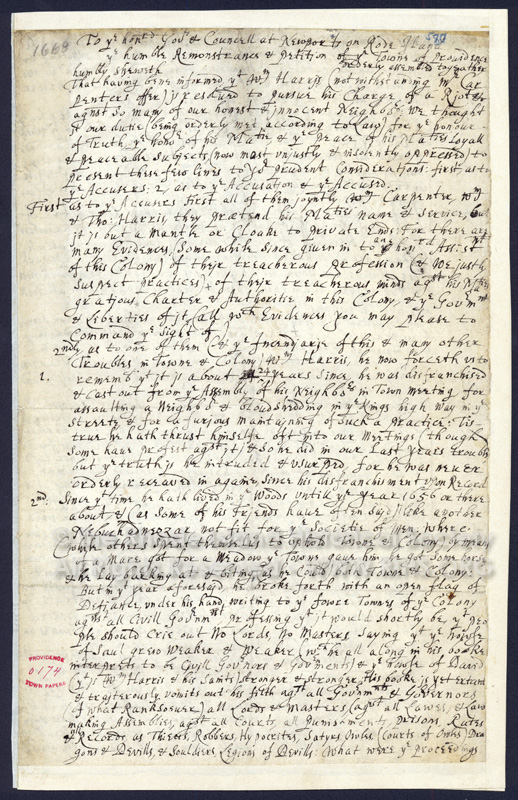 1668
589
To ye honrd Govr & Councell at Newport on Rode Iland
ye humble Remonstrance & Petition of ye Towne of Providence
humbly sheweth orderly assembled together
That having bene informed yt Wm Harris (notwithstanding Wm Car
penters offer) is resolved to pursue his Charge of a Riot &c
agnst so many of our honest & innocent Neighbrs: We thought
it our dutie (being orderly met according to Law) for ye honour
of Truth ye honor of his Matie & ye peace of his Maties Loyall
& peaceable subjects (now most unjustly & insolently oppressed) to
present these few lines to Yor prudent Considerations: first, as to
ye Accusers: 2, as to ye Accusation & ye Accused.
First as to ye Accusers first all of them joyntly Wm Carpenter, Wm
& Tho: Harris, they prætend his Maties name & Service, but
it is but a Mantle or Cloake to private Ends: For there are
many Evidences, (some while since given in to any honrd Assistnt
of this Colony) of their treacherous profession (& We justly
suspect practices) & of their treacherous minds agst his Maties
gratious Charter & Authoritie in this Colony & ye Govmnt
& Liberties of it (all wch Evidences you may please to
Command ye sight of)
2ndly as to one of them (ye Incendiarie of this & many other
Troubles in Towne & Colony) Wm Harris, he now forceth us to
1. rememb yt it is about 24 years since he was disfranchised
& cast out from ye Assembly of his Neighbrs in Town meeting for
assaulting a Neighbr & bloudshedding in ye Kings high Way in ye
streete & for a furious maintaining of such a practice: Tis
true he hath thrust himselfe oft into our Meetings (though
some have protest agst it) & some did in our Last years trouble
but ye truth is he intruded & usurped, for he was never
orderly received in againe, since his disfranchisment upon Record
2nd. Since yt time he hath lived in ye Woods untill ye year 1656 or there
about & (as some of his friends have often sayd) like another
Nebuchadnezzar not fit for ye Societie of Men: where
(while others spent themselves to uphold Towne & Colony) of many
Mare got for a Meadow ye Towne gave him he got some horse
& he lay barking at & biting as he could both Towne & Colony.
But in ye year aforesaid he broke forth with an open flag of
Defiance under his hand writing to ye fowre Townes of ye Colony
agnst all Civill Govmnt professing yt it would shortly be, yt peo
ple should Crie out No Lords, No Masters Saying yt ye howse
of Saul grew Weaker & Weaker (wch he all along in his booke
interprets to be Civill Govnors & Govments) & ye house of David
(yt is Wm Harris & his Saints) stronger & stronger. His booke is yet extant
& traiterously vomits out his filth agst all Govmnts & Governors
(of what Rank soever) all Lords & Masters (agst all Lawes, & Law
making Assemblies, agst all Courts, all Punishments, prisons, Rates
& Records, as Thieves, Robbers, Hypocrites, Satyrs, Owles (Courts of Owles) Dra
gons & Devills, & Souldiers, Legions of Devills: What were ye proceedings
PROVIDENCE
0174
TOWN PAPERS